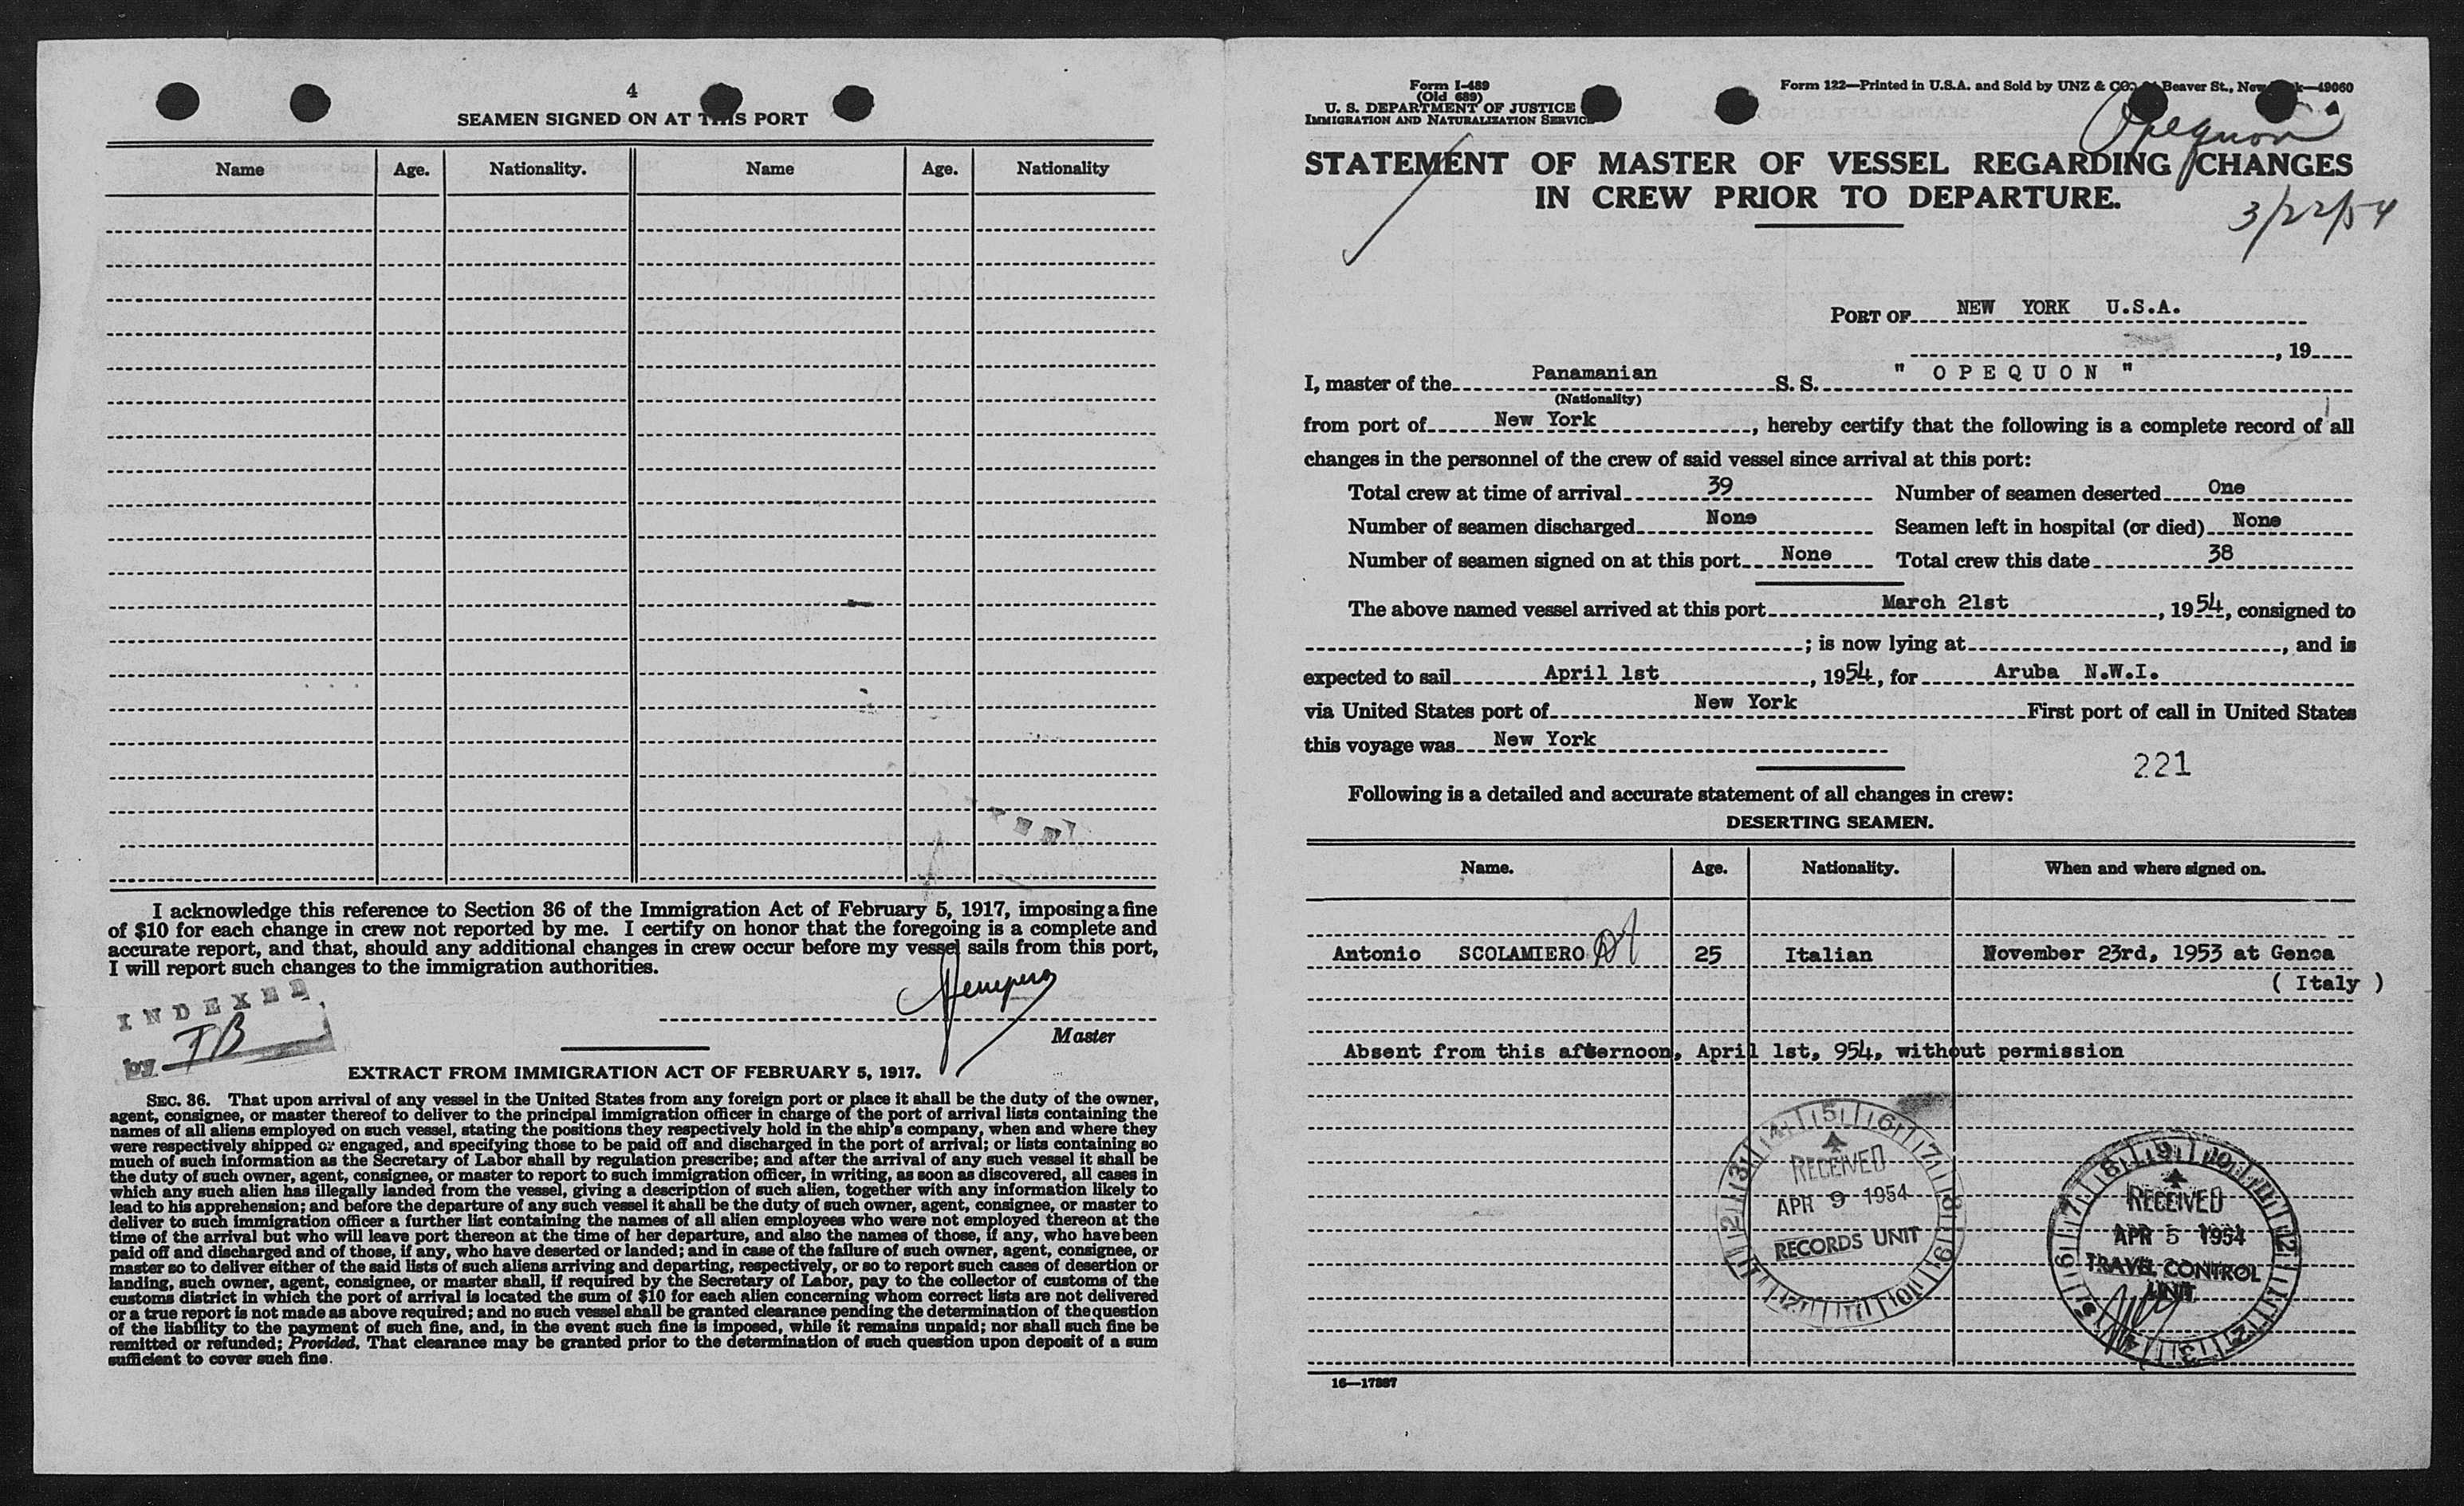 4
SEAMEN SIGNED ON AT THIS PORT
Name Age. Nationality. Name Age. Nationality
I acknowledge this reference to Section 36 of the Immigration Act of February 5, 1917, imposing a fine
of $10 for each change in crew not reported by me. I certify on honor that the foregoing is a complete and
accurate report, and that, should any additional changes in crew occur before my vessel sails from this port,
I will report such changes to the immigration authorities.
INDEXED
by TB
Master
EXTRACT FROM IMMIGRATION ACT OF FEBRUARY 5, 1917.
SEC. 36. That upon arrival of any vessel in the United States from any foreign port or place it shall be the duty of the owner,
agent, consignee, or master thereof to deliver to the principal immigration officer in charge of the port of arrival lists containing the
names of all aliens employed on such vessel, stating the positions they respectively hold in the ship's company, when and where they
were respectively shipped or engaged, and specifying those to be paid off and discharged in the port of arrival; or lists containing so
much of such information as the Secretary of Labor shall by regulation prescribe; and after the arrival of any such vessel it shall be
the duty of such owner, agent, consignee, or master to report to such immigration officer, in writing, as soon as discovered, all cases in
which any such alien has illegally landed from the vessel, giving a description of such alien, together with any information likely to
lead to his apprehension; and before the departure of any such vessel it shall be the duty of such owner, agent, consignee, or master to
deliver to such immigration officer a further list containing the names of all alien employees who were not employed thereon at the
time of the arrival but who will leave port thereon at the time of her departure, and also the names of those, if any, who have been
paid off and discharged and of those, if any, who have deserted or landed; and in case of the failure of such owner, agent, consignee, or
master so to deliver either of the said lists of such aliens arriving and departing, respectively, or so to report such cases of desertion or
landing, such owner, agent, consignee, or master shall, if required by the Secretary of Labor, pay to the collector of customs of the
customs district in which the port of arrival is located the sum of $10 for each alien concerning whom correct lists are not delivered
or a true report is not made as above required; and no such vessel shall be granted clearance pending the determination of the question
of the liability to the payment of such fine, and, in the event such fine is imposed, while it remains unpaid; nor shall such fine be
remitted or refunded; Provided, That clearance may be granted prior to the determination of such question upon deposit of a sum
sufficient to cover such fine.
Form I-489
(Old 689)
U. S. DEPARTMENT OF JUSTICE
IMMIGRATION AND NATURALIZATION SERVICE
Form 122—Printed in U.S.A. and Sold by UNZ & CO. Beaver St., New k—49060
Opequon
STATEMENT OF MASTER OF VESSEL REGARDING CHANGES
IN CREW PRIOR TO DEPARTURE.
3/22/54
PORT OF NEW YORK U.S.A.
, 19
I, master of the Panamanian S. S. " OPEQUON "
(Nationality)
from port of New York, hereby certify that the following is a complete record of all
changes in the personnel of the crew of said vessel since arrival at this port:
Total crew at time of arrival 39 Number of seamen deserted One
Number of seamen discharged None Seamen left in hospital (or died) None
Number of seamen signed on at this port None Total crew this date 38
The above named vessel arrived at this port March 21st, 1954, consigned to
; is now lying at , and is
expected to sail April 1st, 1954, for Aruba N.W.I.
via United States port of New York First port of call in United States
this voyage was New York
221
Following is a detailed and accurate statement of all changes in crew:
DESERTING SEAMEN.
Name. Age. Nationality. When and where signed on.
Antonio SCOLAMIERO 25 Italian November 23rd, 1953 at Genoa
( Italy )
Absent from this afternoon, April 1st, 954, without permission
RECEIVED
APR 9 1954
RECORDS UNIT
RECEIVED
APR 5 1954
TRAVEL CONTROL
UNIT
16—17887